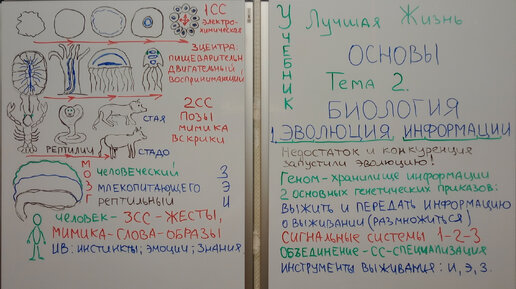 1СС
ЭЛЕКТРО-
ХИМИЧЕСКАЯ
3ЦЕНТРА:
ПИЩЕВАРИТЕЛЬН
ДВИГАТЕЛЬНЫЙ
ВОСПРИНИМАЮЩИЙ
2СС
ПОЗЫ
МИМИКА
ВСКРИКИ
СТАЯ
РЕПТИЛИИ
СТАДО
МОЗГ
ЧЕЛОВЕЧЕСКИЙ З
МЛЕКОПИТАЮЩЕГО Э
РЕПТИЛЬНЫЙ И
ЧЕЛОВЕК- 3СС-ЖЕСТЫ,
МИМИКА-СЛОВА-ОБРАЗЫ
ИВ: ИНСТИНКТЫ; ЭМОЦИИ; ЗНАНИЯ.
УЧЕБНИК
Лучшая Жизнь
ОСНОВЫ
Тема 2.
БИОЛОГИЯ
1.ЭВОЛЮЦИЯ ИНФОРМАЦИИ
НЕДОСТАТОК И КОНКУРЕНЦИЯ
ЗАПУСТИЛИ ЭВОЛЮЦИЮ!
ГЕНОМ-ХРАНИЛИЩЕ ИНФОРМАЦИИ
2 ОСНОВНЫХ ГЕНЕТИЧЕСКИХ ПРИКАЗОВ:
ВЫЖИТЬ И ПЕРЕДАТЬ ИНФОРМАЦИЮ
О ВЫЖИВАНИИ (РАЗМНОЖИТЬСЯ)
СИГНАЛЬНЫЕ СИСТЕМЫ 1-2-3
ОБЪЕДИНЕНИЕ-СС-СПЕЦИАЛИЗАЦИЯ
ИНСТРУМЕНТЫ ВЫЖИВАНИЯ: И, Э, З.